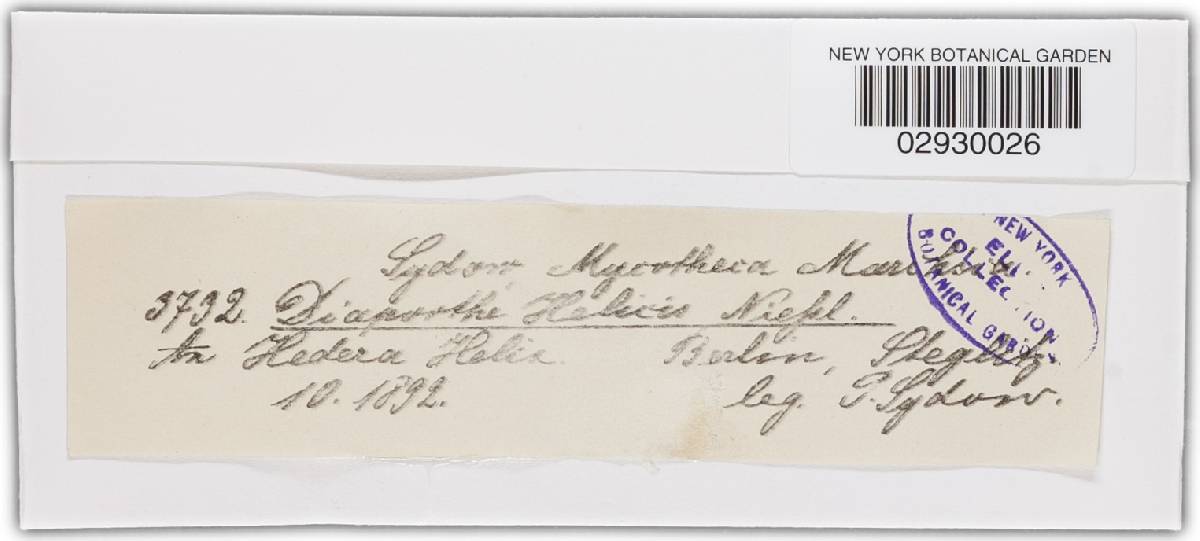 NEW YORK BOTANICAL GARDEN
02930026
Sydow, Mycotheca Marchica.
3732. Diaporthe Helicis Nießl.
An Hedera Helix. Berlin, Steglitz.
10. 1892. leg. P. Sydow.
NEW YORK
COLLECTION
BOTANICAL GARDEN